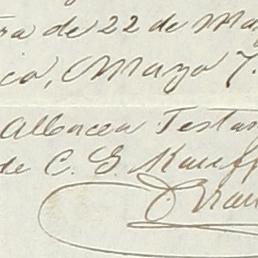 ra de 22 de Ma
ico, Marzo 7.
Albacea Testa
de C. G. Kauff